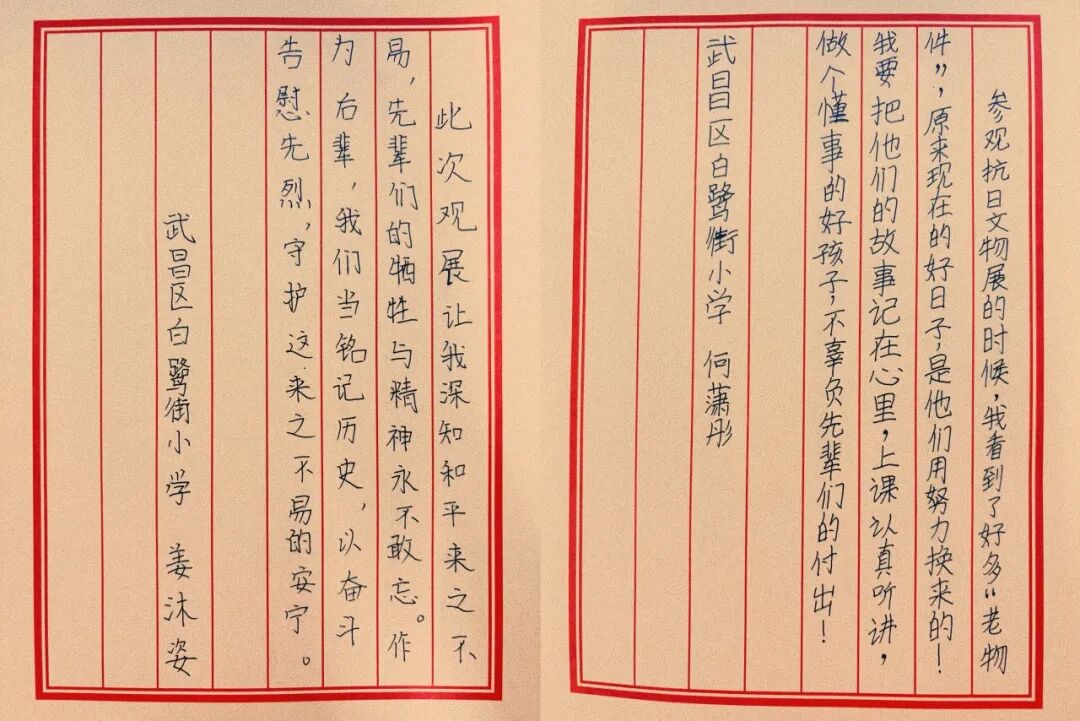 此次观展让我深知和平来之不
易，先辈们的牺牲与精神永不敢忘。作
为后辈，我们当铭记历史，以奋斗
告慰先烈，守护这来之不易的安宁。
武昌区白鹭街小学 姜沐姿
参观抗日文物展的时候，我看到了好多“老物
件”，原来现在的好日子，是他们用努力换来的！
我要把他们的故事记在心里，上课认真听讲，
做个懂事的好孩子，不辜负先辈们的付出！
武昌区白鹭街小学 何潇彤